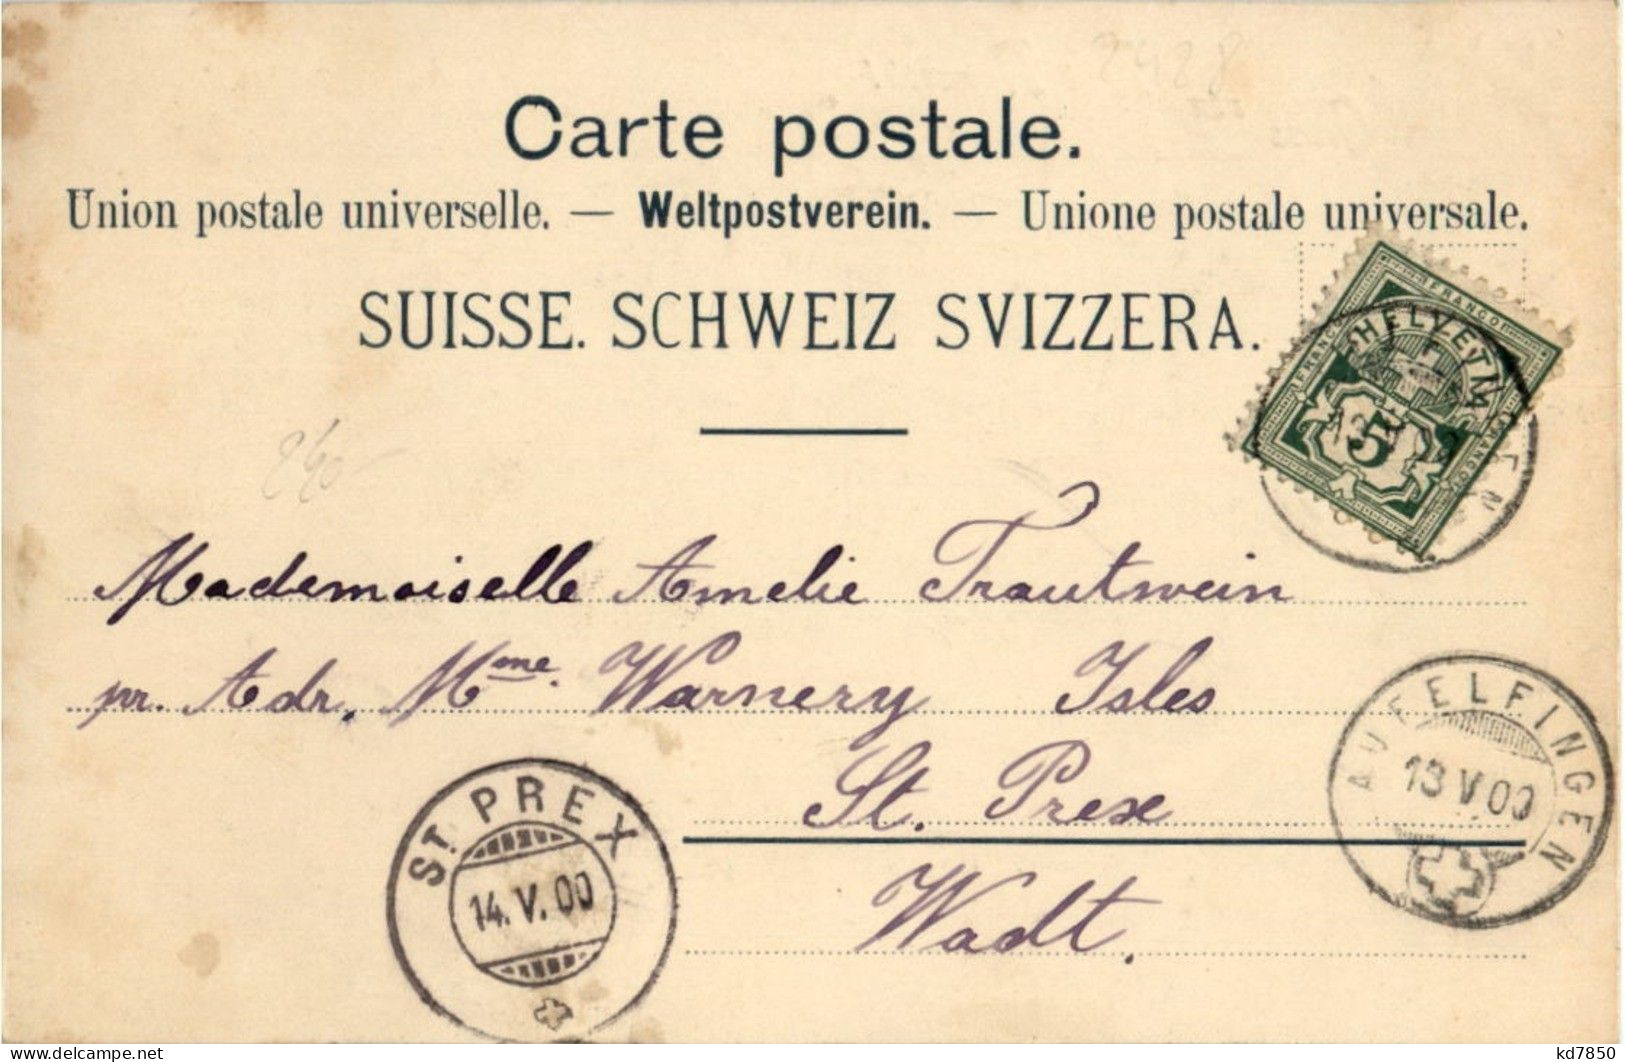 Carte postale.
Union postale universelle. — Weltpostverein. — Unione postale universale.
SUISSE. SCHWEIZ SVIZZERA.
FRANCO FRANCO FRANCO
HELVETIA
5
Mademoiselle Amelie Trautwein
pr. Adr. Mme. Warnery Isles
St. Prex
Wadt.
AU FELFINGEN
13 V 00
ST. PREX
14. V. 00
delcampe.net
kd7850